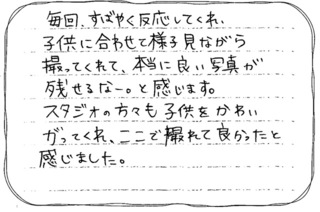 毎回、すばやく反応してくれ、
子供に合わせて様子見ながら
撮ってくれて、本当に良い写真が
残せるなー。と感じます。
スタジオの方々も子供をかわい
がってくれ、ここで撮れて良かったと
感じました。